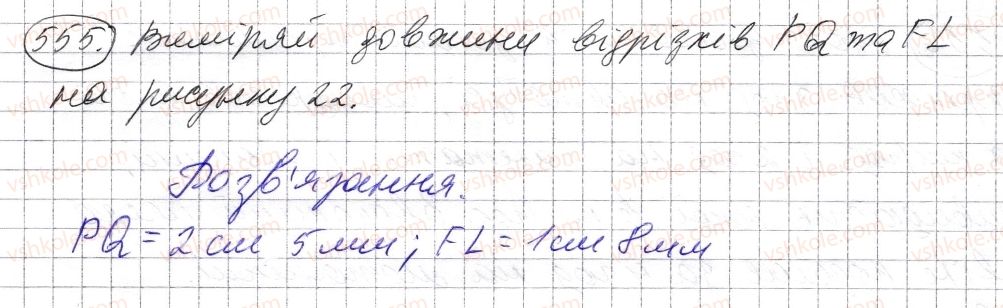 555. Виміряй довжини відрізків PQ та FL
на рисунку 22.
Розв'язання.
PQ = 2 см 5 мм; FL = 1 см 8 мм